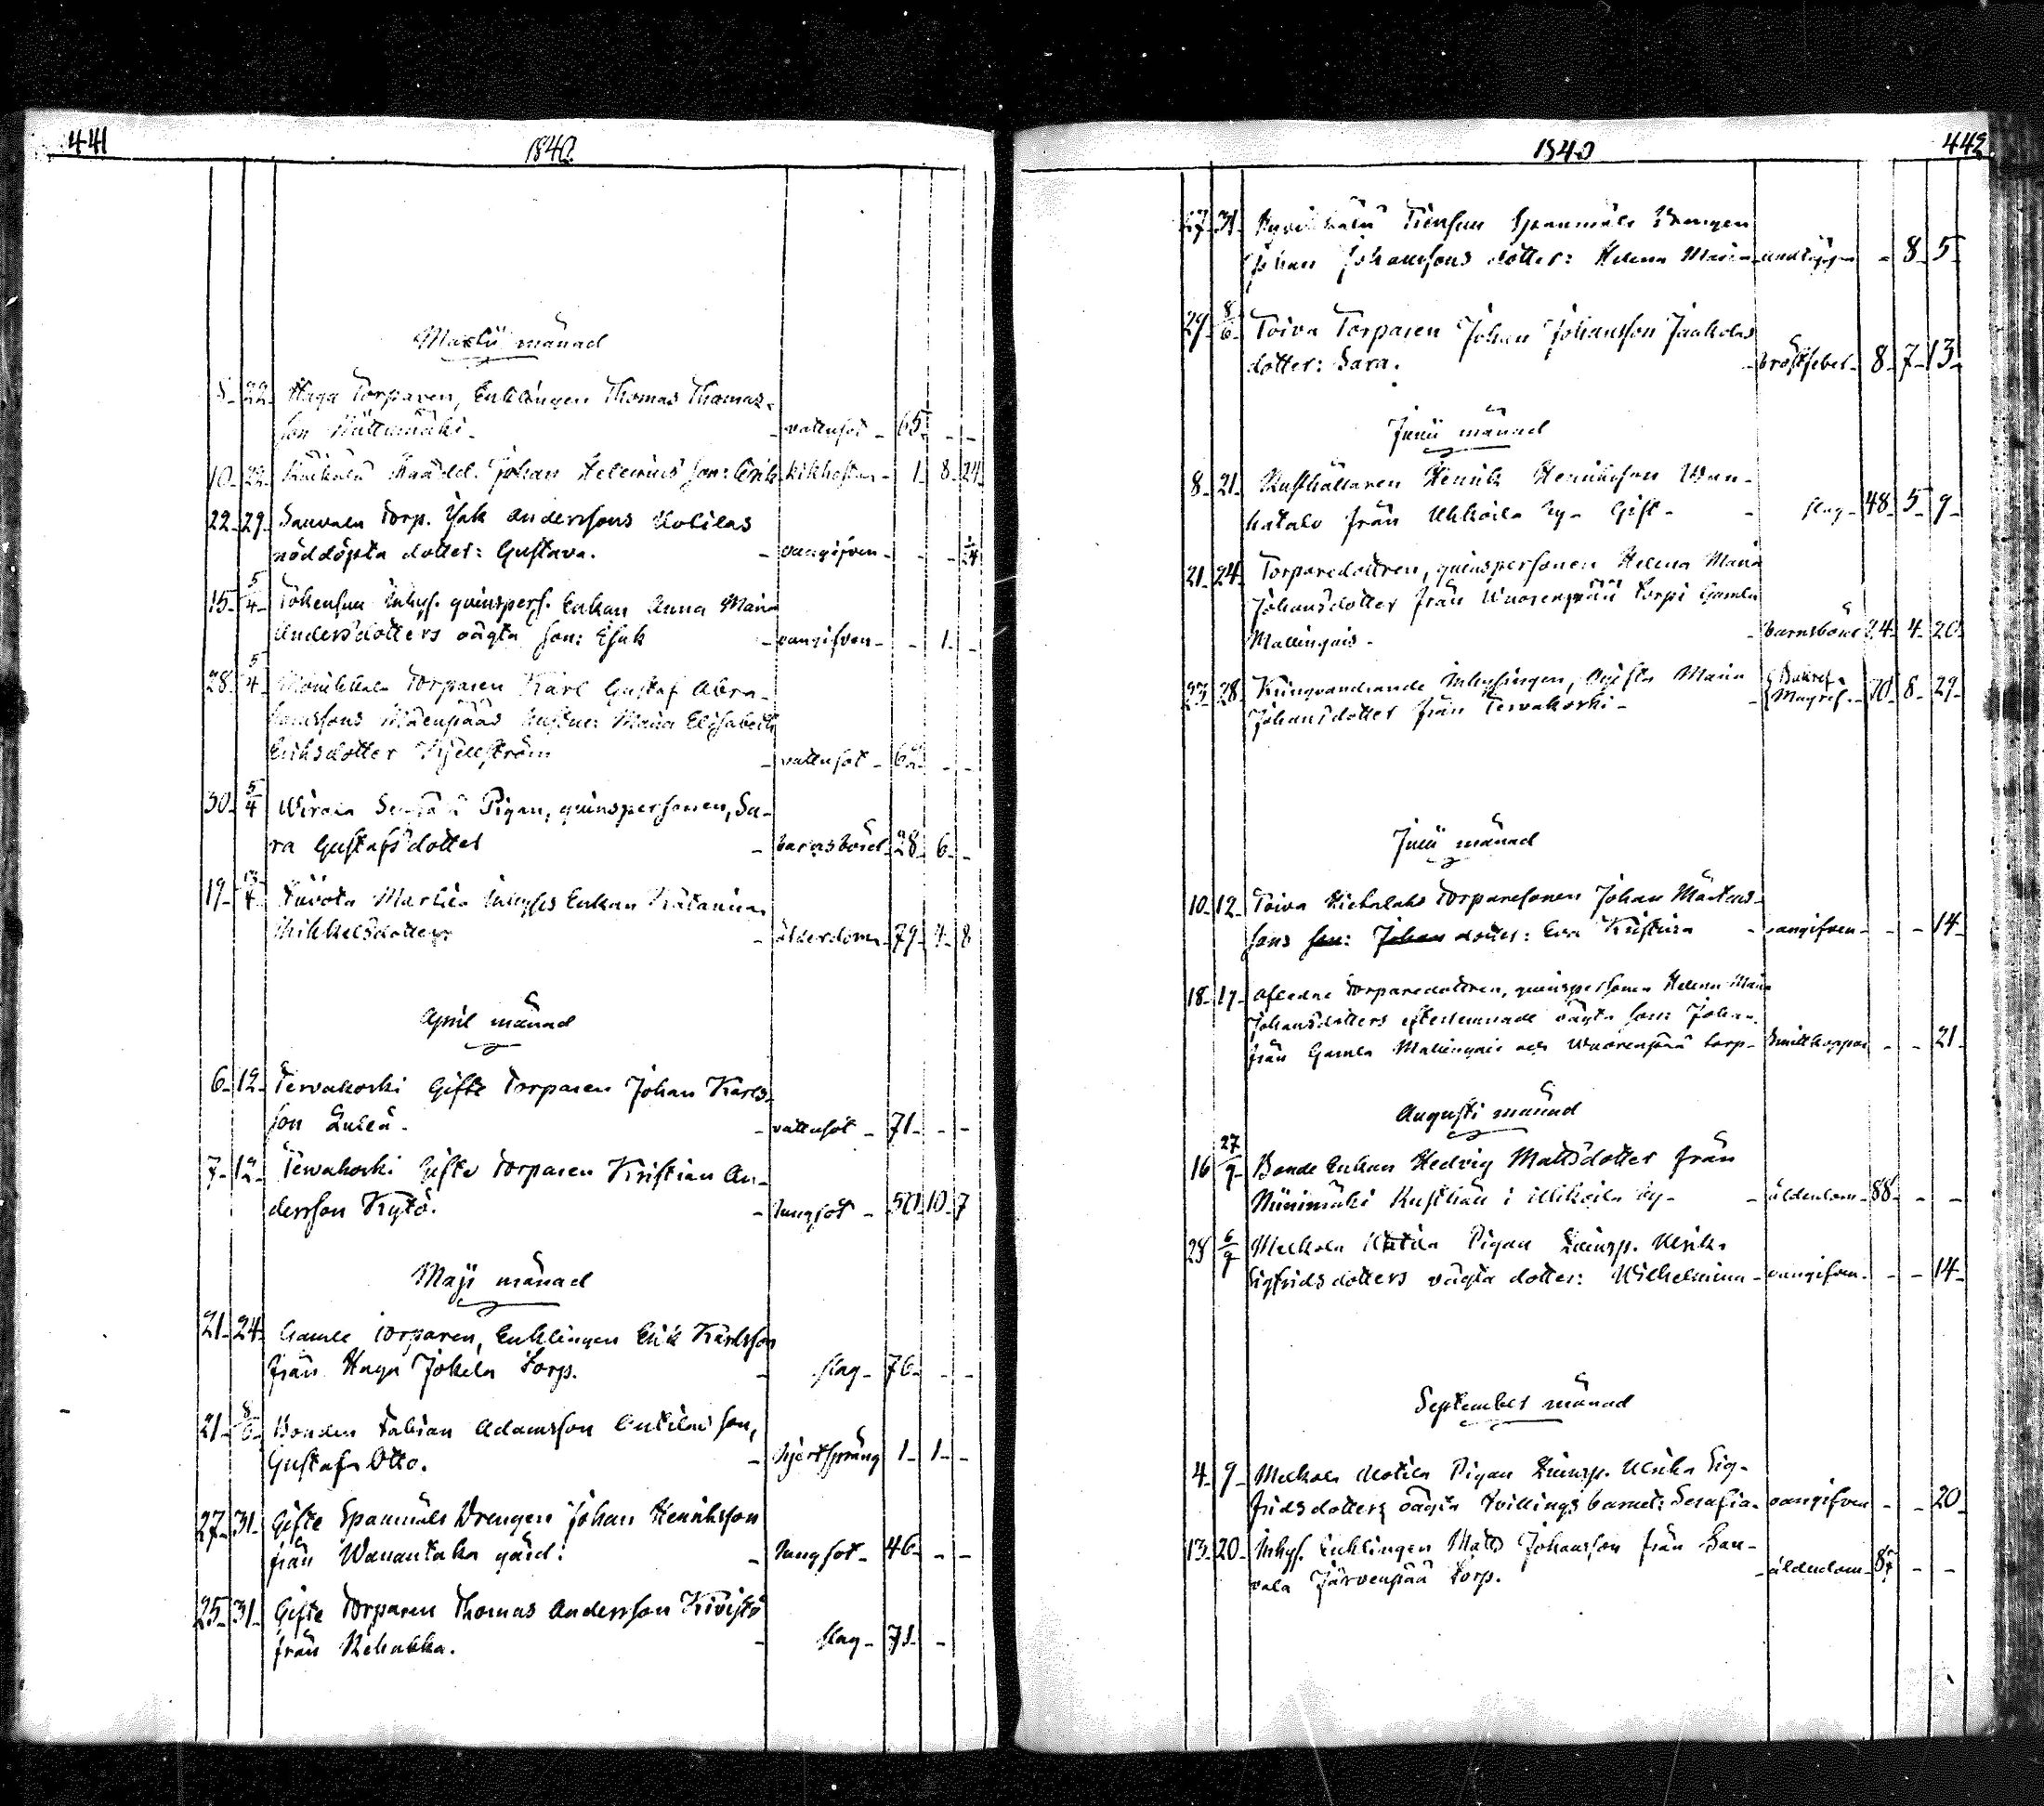 441
1840
Martii månad
5. 22. Haga Torparen, Enklingen Thomas Thomas-
son - vattusot - 65. - -
10. 22. Johan Helenius son: Erik kikhosta - 1. 8. 24.
22. 29. Sauvala Torp. Isak Anderssons Uotilas
nöddöpta dotter: Gustava. - oangifven - - - 1/24
15. 5/4. Inhys. qvinspers. Enkan Anna Maria
Andersdotters oägta son: Esak - oangifven - - 1. -
28. 5/4 Torparen Karl Gustaf Abra-
hamssons hustru: Maria Elisabeth
Eriksdotter - vattusot - - -
30. 5/4 Pigan, qvinspersonen, Sa-
ra Gustafsdotter - barnsbörd. 28. 6. -
19. Inhyses Enkan Katarina
Mikkelsdotter - ålderdom - 79. 8
April månad
6. 12. Tervakoski Gifte Torparen Johan Karls-
son - vattusot - 71. - -
7. 12. Tervakoski Gifte Torparen Kristian An-
dersson Kytö. - lungsot - 50. 10. 7
Maji månad
21. 24. Gamle Torparen, Enklingen Erik Karlsson
från Haga Jokela Torp. - slag - 76. - -
21. 8/6. Bonden Fabian Adamsson son,
Gustaf Otto. - hjertsprång 1. 1. -
27. 31. Gifte Spanmåls Drengen Johan Henriksson
från Wanantaka gård. - lungsot - 46. - -
25. 31. Gifte Torparen Thomas Andersson Kivistö
från Rehakka. - slag - 71. -
1840
442
27. 31. Spanmåls Drengen
Johan Johanssons dotter: Helena Maria - - 8. 5
29. 8/6. Toiva Torparen Johan Johansson Jaakolas
dotter: Sara. - bröstfeber - 8. 7. 13.
Junii månad
8. 21. Rusthållaren Henrik Henriksson Wan-
hatalo från by - Gift - - slag - 48. 5. 9.
21. 24. Torparedottren, qvinspersonen Helena Maria
Johansdotter från Wuorenpää Torp i Gamla
Mallinkais - - barnsbörd 24. 4. 20.
23. 28. Kringvandrande Inhysingen, Ogifta Maria
Johansdotter från Tervakoski - - 8. 29.
Julii månad
10. 12. Toiva Torparesonen Johan Mårtens-
sons son: Johan dotter: Eva Kristina - oangifven - - - 14.
18. 19. Aflidne Torparedottren, qvinspersonen Helena Maria
Johansdotters efterlemnade oägta son: Johan.
från Gamla Mallinkais och Wuorenpää torp - Smittkoppor - - 21.
Augusti månad
16 27/9. Bonde Enkan Hedvig Mattsdotter från
Niinimäki Rusthåll i by - - ålderdom - 88. - -
28 6/9 Melkola Uotila Pigan Qvinsp. Ulrika
Sigfridsdotters oägta dotter: Wilhelmina - oangifven. - - 14.
September månad
4. 9. Melkola Uotila Pigan Qvinsp. Ulrika Sig-
fridsdotters oägta tvillings barnet: Serafia. - oangifven - - 20.
13. 20. Inhys. Enklingen Matts Johansson från Sau-
vala Järvenpää Torp. - ålderdom - - -